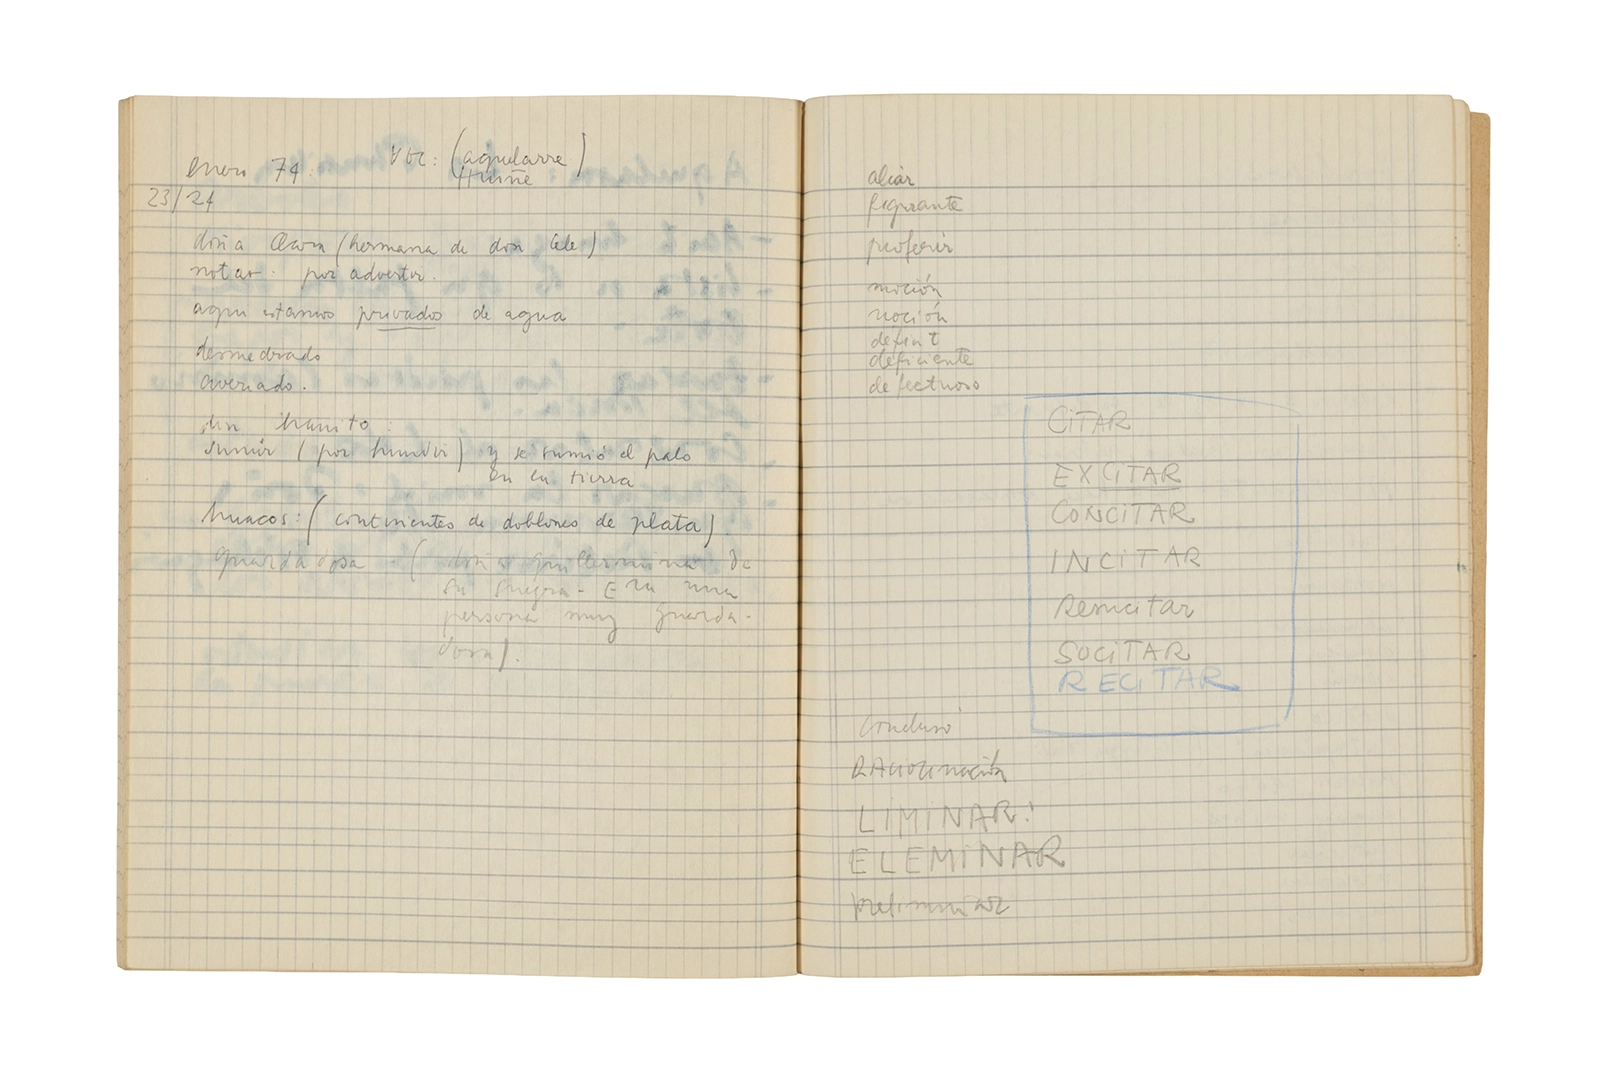 enero 74.
Voc: (aquelarre)
Huiñe
23/24
doña (hermana de don Cele)
notar. por advertir.
aqui estamos privados de agua
desmedrado
averiado.
don
sumir (por hundir) y se sumió el palo
en la tierra
huacos: (continentes de doblones de plata)
guardadosa (doña Guillermina de
su suegra - Era una
persona muy guarda-
dosa).
aliar
figurante
proferir
moción
noción
deficit
deficiente
defectuoso
CITAR
EXCITAR
CONCITAR
INCITAR
Resucitar
SOCITAR
RECITAR
RAciocinación
LIMINAR!
ELEMINAR
preliminar